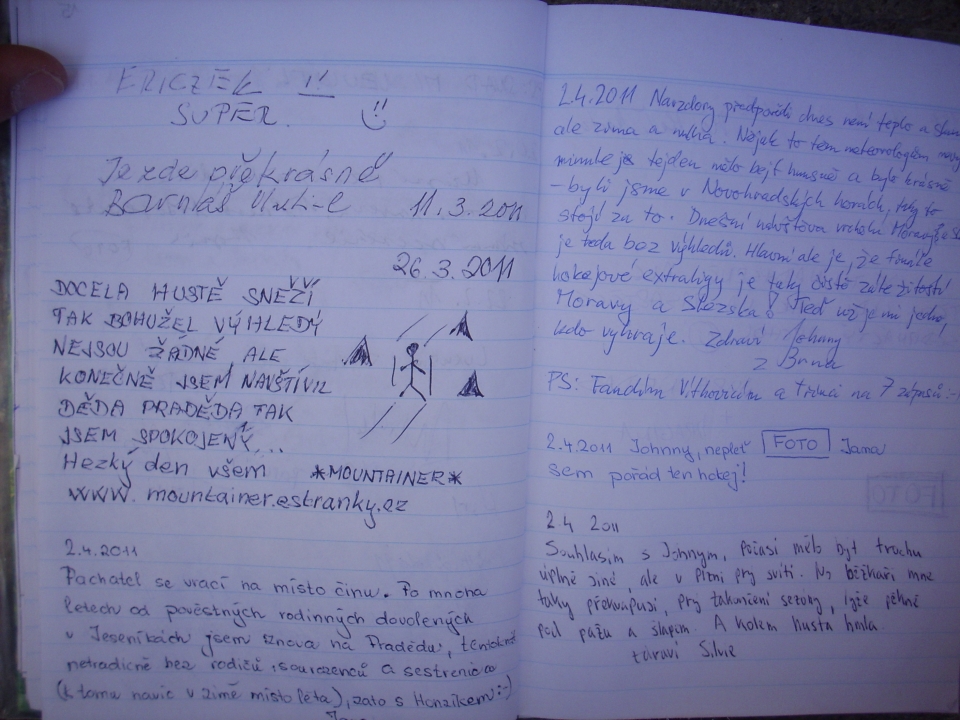 ERICZEK !!
SUPER.
Je zde překrásně
11.3.2011
26.3.2011
DOCELA HUSTĚ SNĚŽÍ
TAK BOHUŽEL VÝHLEDY
NEJSOU ŽÁDNÉ, ALE
KONEČNĚ JSEM NAVŠTÍVIL
DĚDA PRADĚDA TAK
JSEM SPOKOJENÝ...
Hezký den všem *MOUNTAINER*
www.mountainer.estranky.cz
2.4.2011
Pachatel se vrací na místo činu. Po mnoha
letech od pověstných rodinných dovolených
v Jeseníkách jsem znova na Pradědu, tentokrát
netradičně bez rodičů, sourozenců a sestřenic
(k tomu navíc v zimě místo léta), zato s Honzíkem :-)
Jana
2.4.2011 Navzdory předpovědi dnes není teplo a
ale zima a mlha. Nějak to těm meteorologům
minule týden mělo bejt hnusně a bylo krásně
- byli jsme v Novohradských horách, taky to
stojí za to. Dnešní návštěva vrcholu Moravy
je teda bez výhledů. Hlavní ale je, že finále
hokejové extraligy je taky čistě záležitostí
Moravy a Slezska! Teď už je mi jedno,
kdo vyhraje. Zdraví Johnny
z Brna
PS: Fandím Vítkovicím a tvrdí na 7 zápasů :-)
2.4.2011 Johnny, nepleť FOTO Jana
sem pořád ten hokej!
2.4 2011
Souhlasím s Johnym, počasí mělo být trochu
úplně jiné, ale v Plzni prý svítí. No běžkaři mne
taky překvapují, prý zakončení sezóny, lyže pěkně
pod pažu a šlapim. A kolem hustá mlha.
zdraví Silvie